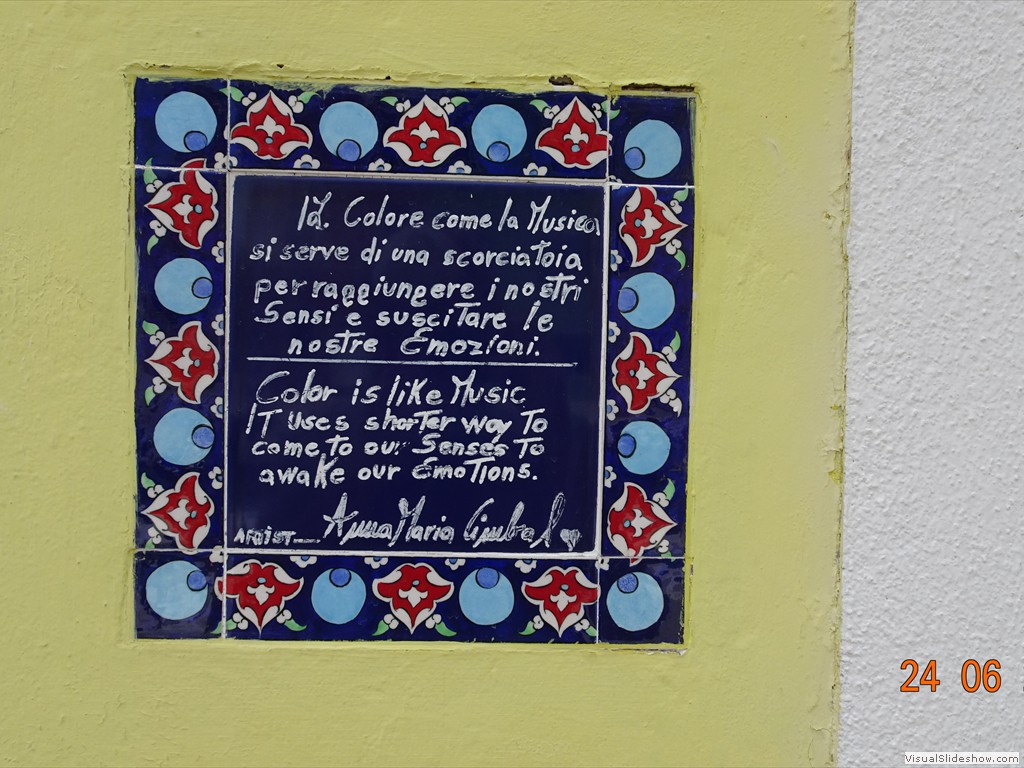 Il Colore come la Musica
si serve di una scorciatoia
per raggiungere i nostri
Sensi e suscitare le
nostre Emozioni.
Color is like Music
IT uses shorter way To
come to our Senses To
awake our EmoTIons.
ARTIST AnnaMaria
24 06
VisualSlideshow.com